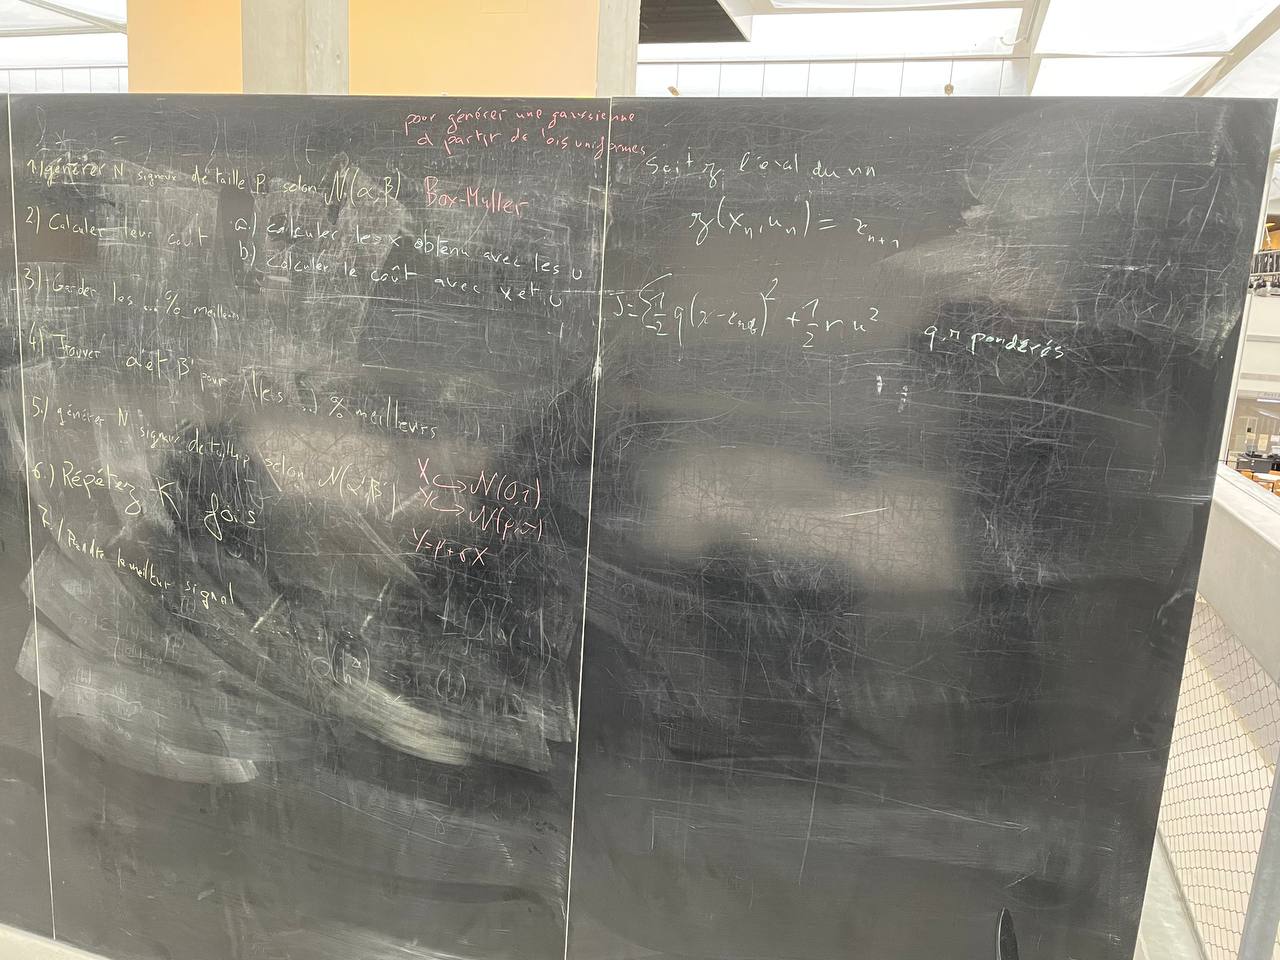 pour générer une gaussienne
à partir de lois uniformes
1) générer N signaux de taille P selon N(α,β) Box-Muller
2) Calculer leur coût a.) calculer les x obtenu avec les u
b.) Calculer le coût avec x et u
3) Garder les ...% meilleurs
4.) Trouver α' et β' pour les ...% meilleurs
5.) générer N signaux de taille P selon N(α',β')
6.) Répétez K fois
7.) Prendre le meilleur signal
X ↪ N(0,1)
Y ↪ N(μ,σ)
Y=μ+σX
Soit g l'eval du nn
g(x_n, u_n) = x_{n+1}
J=Σ 1/2 q(x-x_ref)² + 1/2 r u²
q,r pondérés